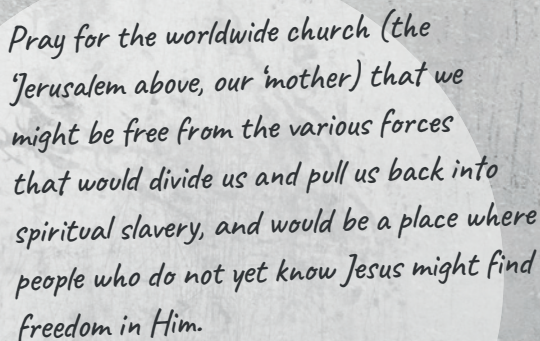 Pray for the worldwide church (the
'Jerusalem above, our 'mother) that we
might be free from the various forces
that would divide us and pull us back into
spiritual slavery, and would be a place where
people who do not yet know Jesus might find
freedom in Him.